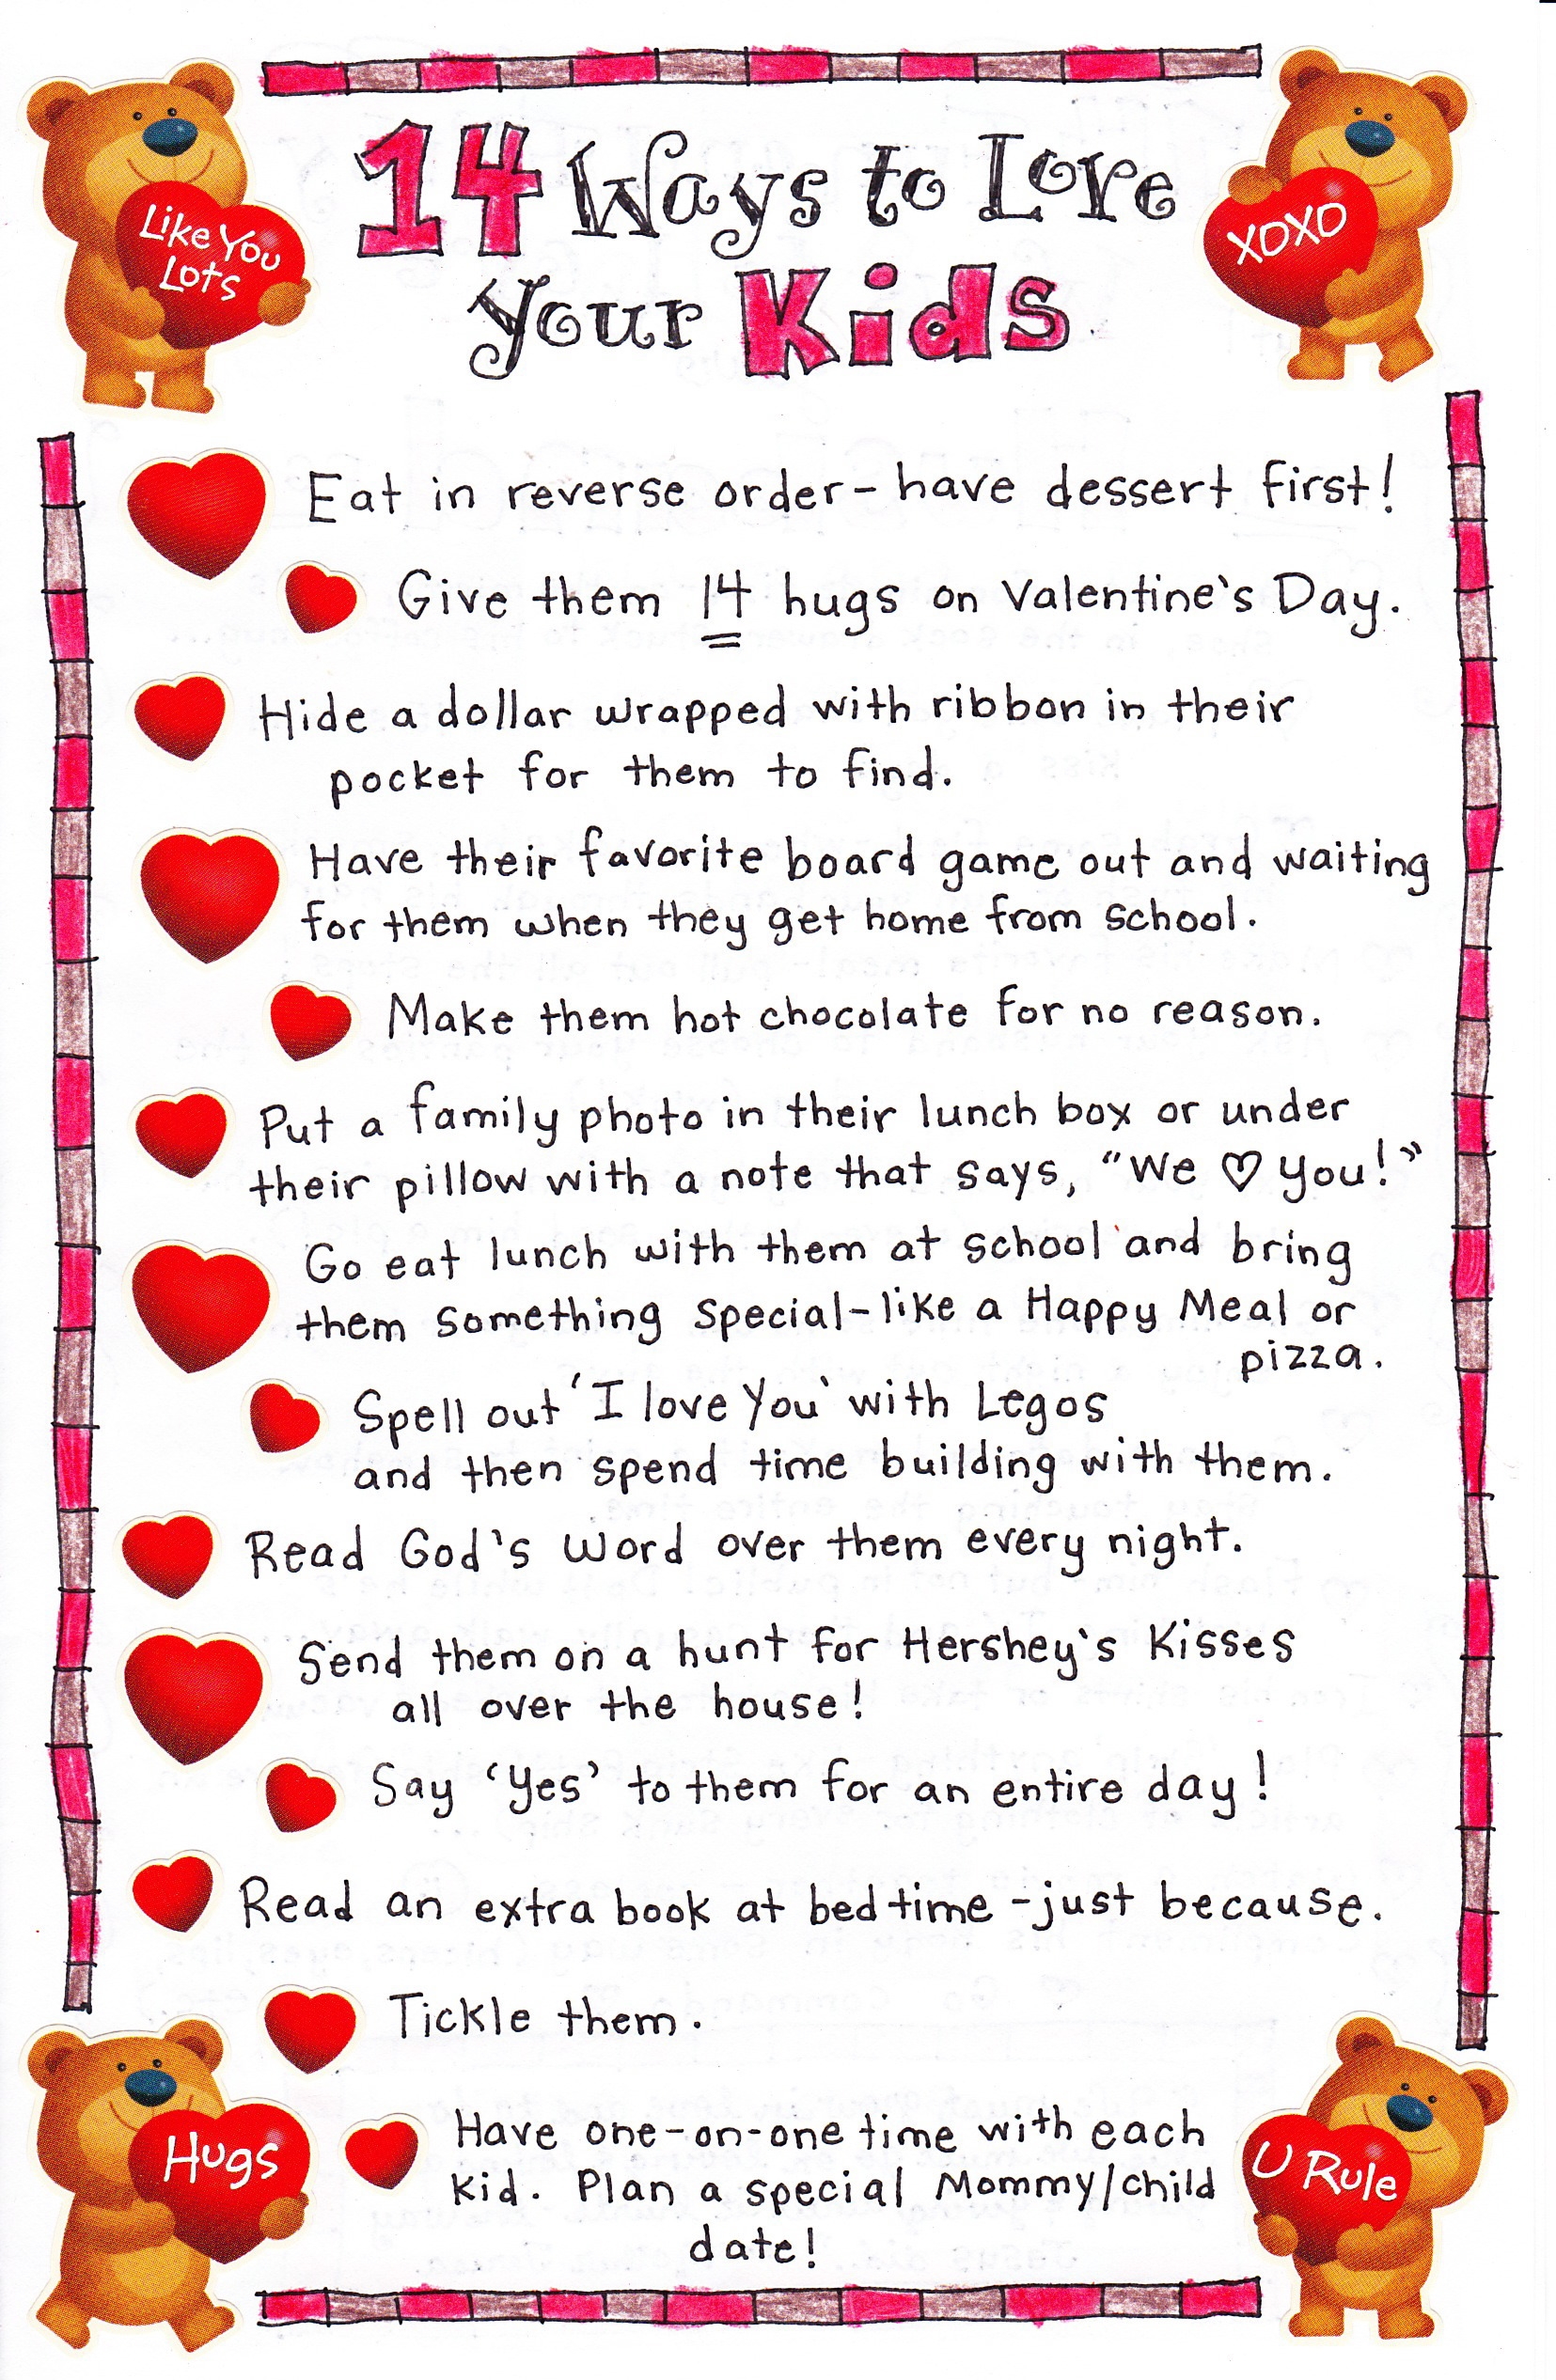 Like You
Lots
XOXO
14 Ways to Love
your Kids
Eat in reverse order - have dessert first!
Give them 14 hugs on Valentine's Day.
Hide a dollar wrapped with ribbon in their
pocket for them to find.
Have their favorite board game out and waiting
for them when they get home from school.
Make them hot chocolate for no reason.
Put a family photo in their lunch box or under
their pillow with a note that says, "We ♡ you!"
Go eat lunch with them at school and bring
them something special - like a Happy Meal or
pizza.
Spell out 'I love You' with Legos
and then spend time building with them.
Read God's word over them every night.
Send them on a hunt for Hershey's Kisses
all over the house!
Say 'Yes' to them for an entire day!
Read an extra book at bedtime - just because.
Tickle them.
Have one-on-one time with each
kid. Plan a special Mommy/child
date!
Hugs
U Rule